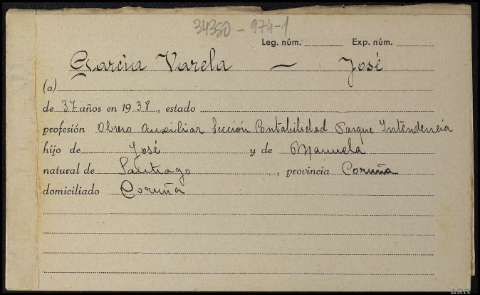 34350-974-1
Leg. núm. Exp. núm.
García Varela — José
(a)
de 37 años en 1938, estado
profesión Obrero Auxiliar Sección Contabilidad Parque Intendencia
hijo de José y de Manuela
natural de Santiago, provincia Coruña
domiciliado Coruña